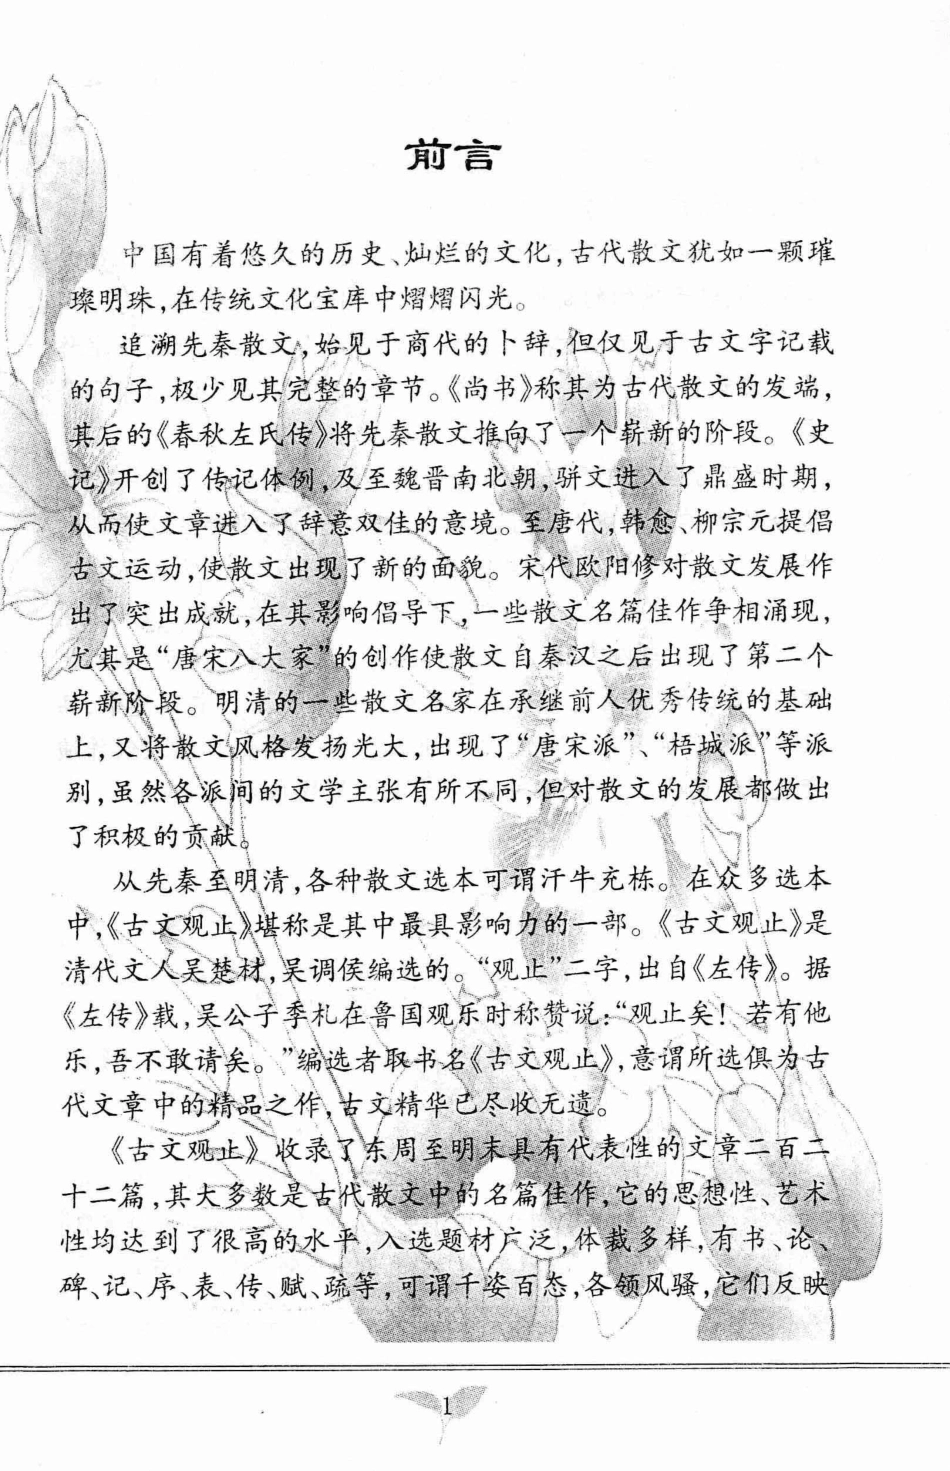 前言
中国有着悠久的历史、灿烂的文化,古代散文犹如一颗璀
璨明珠,在传统文化宝库中熠熠闪光。
追溯先秦散文,始见于商代的卜辞,但仅见于古文字记载
的句子,极少见其完整的章节。《尚书》称其为古代散文的发端,
其后的《春秋左氏传》将先秦散文推向了一个崭新的阶段。《史
记》开创了传记体例,及至魏晋南北朝,骈文进入了鼎盛时期,
从而使文章进入了辞意双佳的意境。至唐代,韩愈、柳宗元提倡
古文运动,使散文出现了新的面貌。宋代欧阳修对散文发展作
出了突出成就,在其影响倡导下,一些散文名篇佳作争相涌现,
尤其是“唐宋八大家”的创作使散文自秦汉之后出现了第二个
崭新阶段。明清的一些散文名家在承继前人优秀传统的基础
上,又将散文风格发扬光大,出现了“唐宋派”、“梧城派”等派
别,虽然各派间的文学主张有所不同,但对散文的发展都做出
了积极的贡献。
从先秦至明清,各种散文选本可谓汗牛充栋。在众多选本
中,《古文观止》堪称是其中最具影响力的一部。《古文观止》是
清代文人吴楚材,吴调侯编选的。“观止”二字,出自《左传》。据
《左传》载,吴公子季札在鲁国观乐时称赞说:“观止矣!若有他
乐,吾不敢请矣。”编选者取书名《古文观止》,意谓所选俱为古
代文章中的精品之作,古文精华已尽收无遗。
《古文观止》收录了东周至明末具有代表性的文章二百二
十二篇,其大多数是古代散文中的名篇佳作,它的思想性、艺术
性均达到了很高的水平,入选题材广泛,体裁多样,有书、论、
碑、记、序、表、传、赋、疏等,可谓千姿百态,各领风骚,它们反映
1